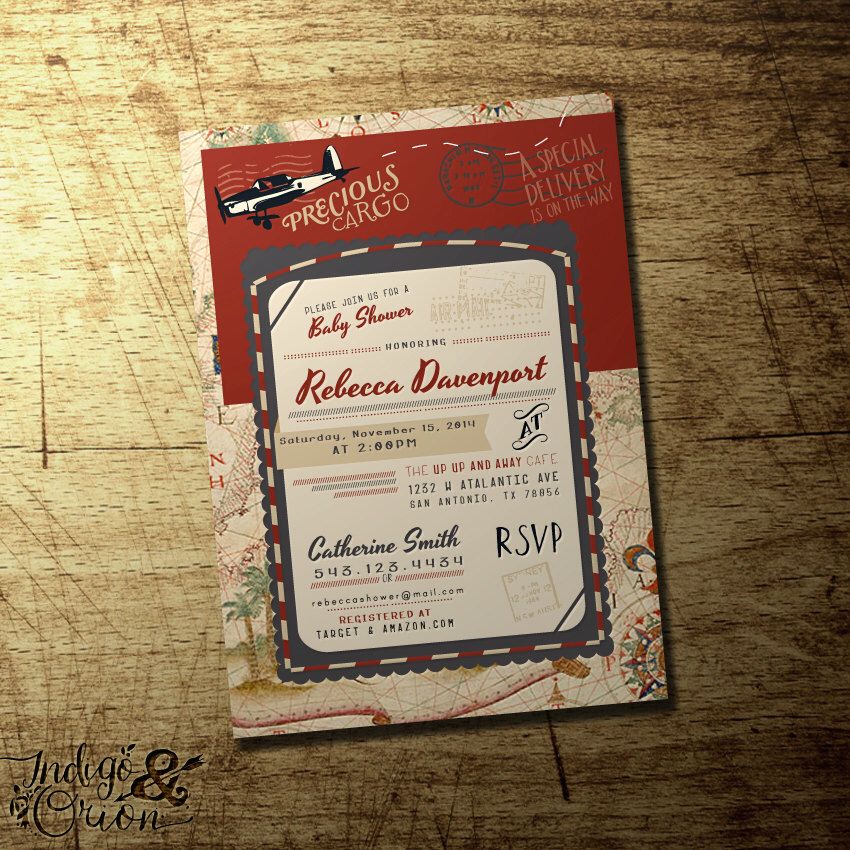 PRECIOUS
CARGO
A SPECIAL
DELIVERY
IS ON THE WAY
PLEASE JOIN US FOR A
Baby Shower
AIR MAIL
HONORING
Rebecca Davenport
Saturday, November 15, 2014
AT 2:00PM
AT
THE UP UP AND AWAY CAFE
1232 W ATALANTIC AVE
SAN ANTONIO, TX 78056
Catherine Smith
543.123.4434
OR
rebeccashower@mail.com
REGISTERED AT
TARGET & AMAZON.COM
RSVP
SYDNEY
Indigo &
Orion